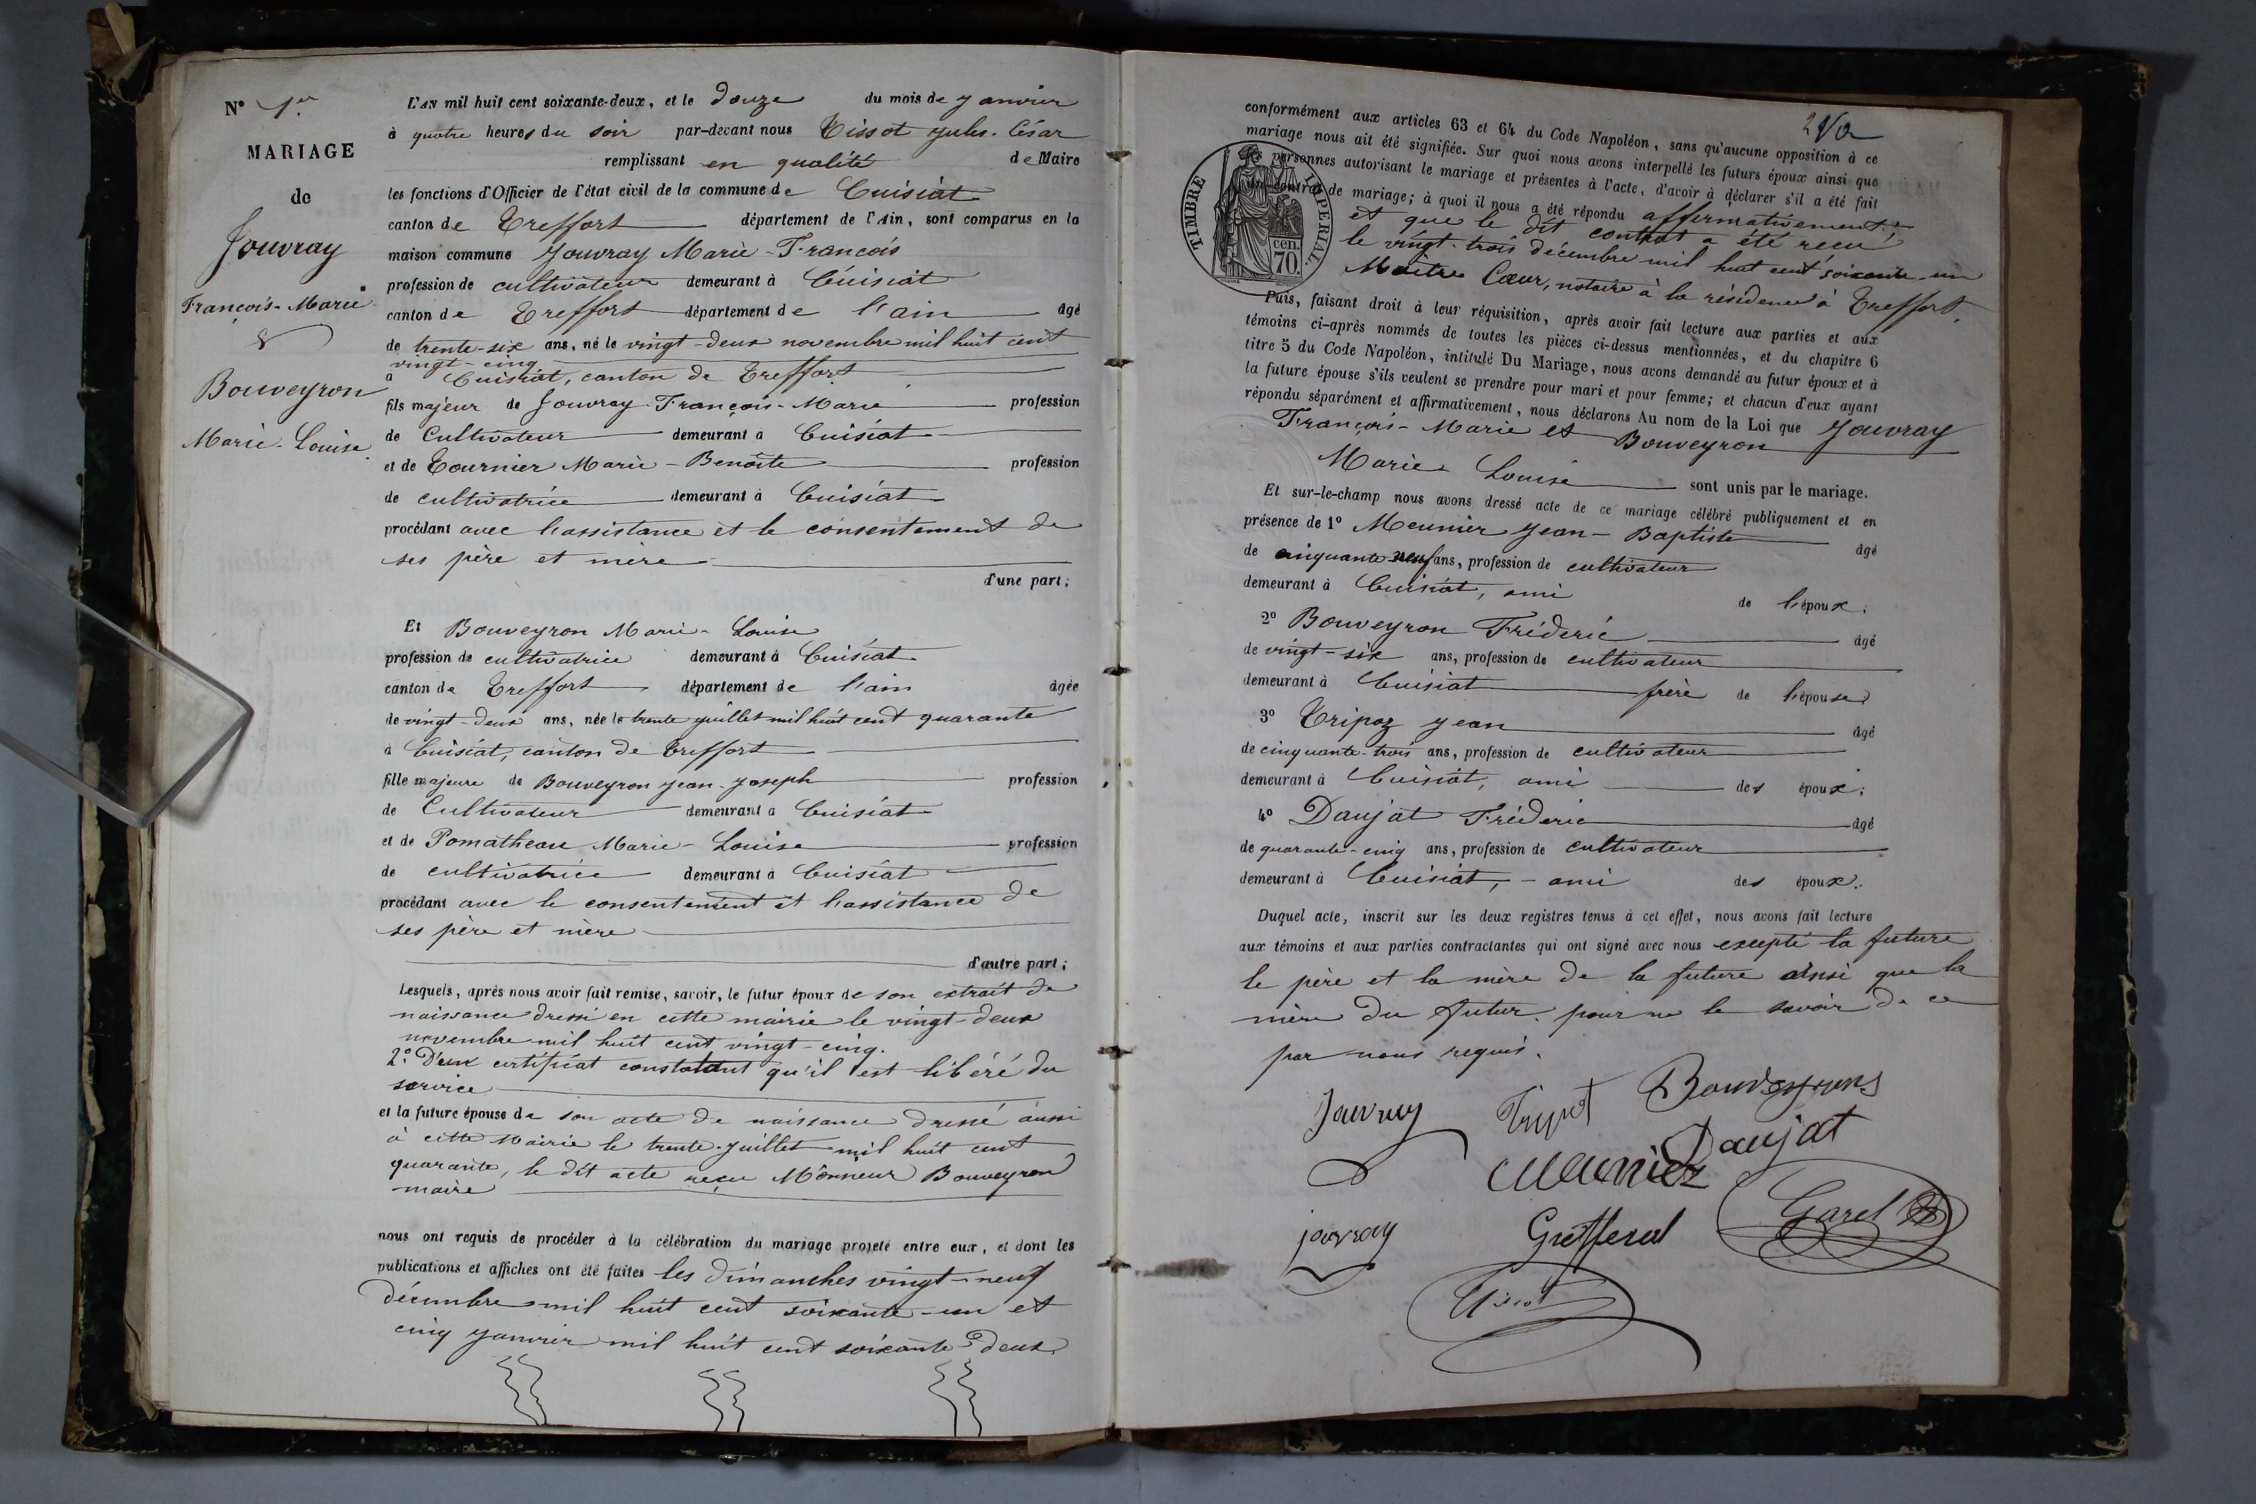 N° 1er
MARIAGE
de
Jouvray
François-Marie
&
Bouveyron
Marie-Louise
L'an mil huit cent soixante-deux, et le douze du mois de janvier
à quatre heures du soir par-devant nous Tissot Jules-César
remplissant en qualité de Maire
les fonctions d'Officier de l'état civil de la commune de Cuisiat
canton de Treffort département de l'Ain, sont comparus en la
maison commune Jouvray Marie-François
profession de cultivateur demeurant à Cuisiat
canton de Treffort département de l'ain âgé
de trente-six ans, né le vingt-deux novembre mil huit cent
vingt cinq
à Cuisiat, canton de Treffort
fils majeur de Jouvray François-Marie profession
de Cultivateur demeurant à Cuisiat
et de Tournier Marie-Benoite profession
de cultivatrice demeurant à Cuisiat
procédant avec l'assistance et le consentement de
ses père et mère
d'une part;
Et Bouveyron Marie-Louise
profession de cultivatrice demeurant à Cuisiat
canton de Treffort département de l'ain âgée
de vingt-deux ans, née le trente juillet mil huit cent quarante
à Cuisiat, canton de Treffort
fille majeure de Bouveyron Jean-Joseph profession
de Cultivateur demeurant à Cuisiat
et de Pomatheau Marie-Louise profession
de cultivatrice demeurant à Cuisiat
procédant avec le consentement et l'assistance de
ses père et mère
d'autre part;
Lesquels, après nous avoir fait remise, savoir, le futur époux de son extrait de
naissance dressé en cette mairie le vingt-deux
novembre mil huit cent vingt-cinq.
2° D'un certificat constatant qu'il est libéré du
service
et la future épouse de son acte de naissance dressé aussi
à cette Mairie le trente-Juillet mil huit cent
quarante, le dit acte reçu Monsieur Bouveyron
maire
nous ont requis de procéder à la célébration du mariage projeté entre eux, et dont les
publications et affiches ont été faites les dimanches vingt-neuf
décembre mil huit cent soixante-un et
cinq janvier mil huit cent soixante-deux
conformément aux articles 63 et 64 du Code Napoléon, sans qu'aucune opposition à ce
mariage nous ait été signifiée. Sur quoi nous avons interpellé les futurs époux ainsi que
les personnes autorisant le mariage et présentes à l'acte, d'avoir à déclarer s'il a été fait
un contrat de mariage; à quoi il nous a été répondu affirmativement
et que le dit contrat a été reçu
le vingt-trois décembre mil huit cent soixante-un
Maître Cœur, notaire à la résidence à Treffort.
TIMBRE IMPERIAL
cen.
70.
Puis, faisant droit à leur réquisition, après avoir fait lecture aux parties et aux
témoins ci-après nommés de toutes les pièces ci-dessus mentionnées, et du chapitre 6
titre 5 du Code Napoléon, intitulé Du Mariage, nous avons demandé au futur époux et à
la future épouse s'ils veulent se prendre pour mari et pour femme; et chacun d'eux ayant
répondu séparément et affirmativement, nous déclarons Au nom de la Loi que Jouvray
François-Marie et Bouveyron
Marie Louise sont unis par le mariage.
Et sur-le-champ nous avons dressé acte de ce mariage célébré publiquement et en
présence de 1° Meunier Jean-Baptiste âgé
de cinquante-neuf ans, profession de cultivateur
demeurant à Cuisiat, ami de l'époux;
2° Bouveyron Fréderic âgé
de vingt-six ans, profession de cultivateur
demeurant à Cuisiat frère de l'épouse
3° Tripoz Jean âgé
de cinquante-trois ans, profession de cultivateur
demeurant à Cuisiat, ami des époux;
4° Daujat Fréderic âgé
de quarante-cinq ans, profession de cultivateur
demeurant à Cuisiat, - ami des époux.
Duquel acte, inscrit sur les deux registres tenus à cet effet, nous avons fait lecture
aux témoins et aux parties contractantes qui ont signé avec nous excepté la future
le père et la mère de la future ainsi que la
mère du futur. pour ne le savoir de ce
par nous requis.
Jouvray Bouveyron
Meunier Daujat
jouvray Garel
Tissot